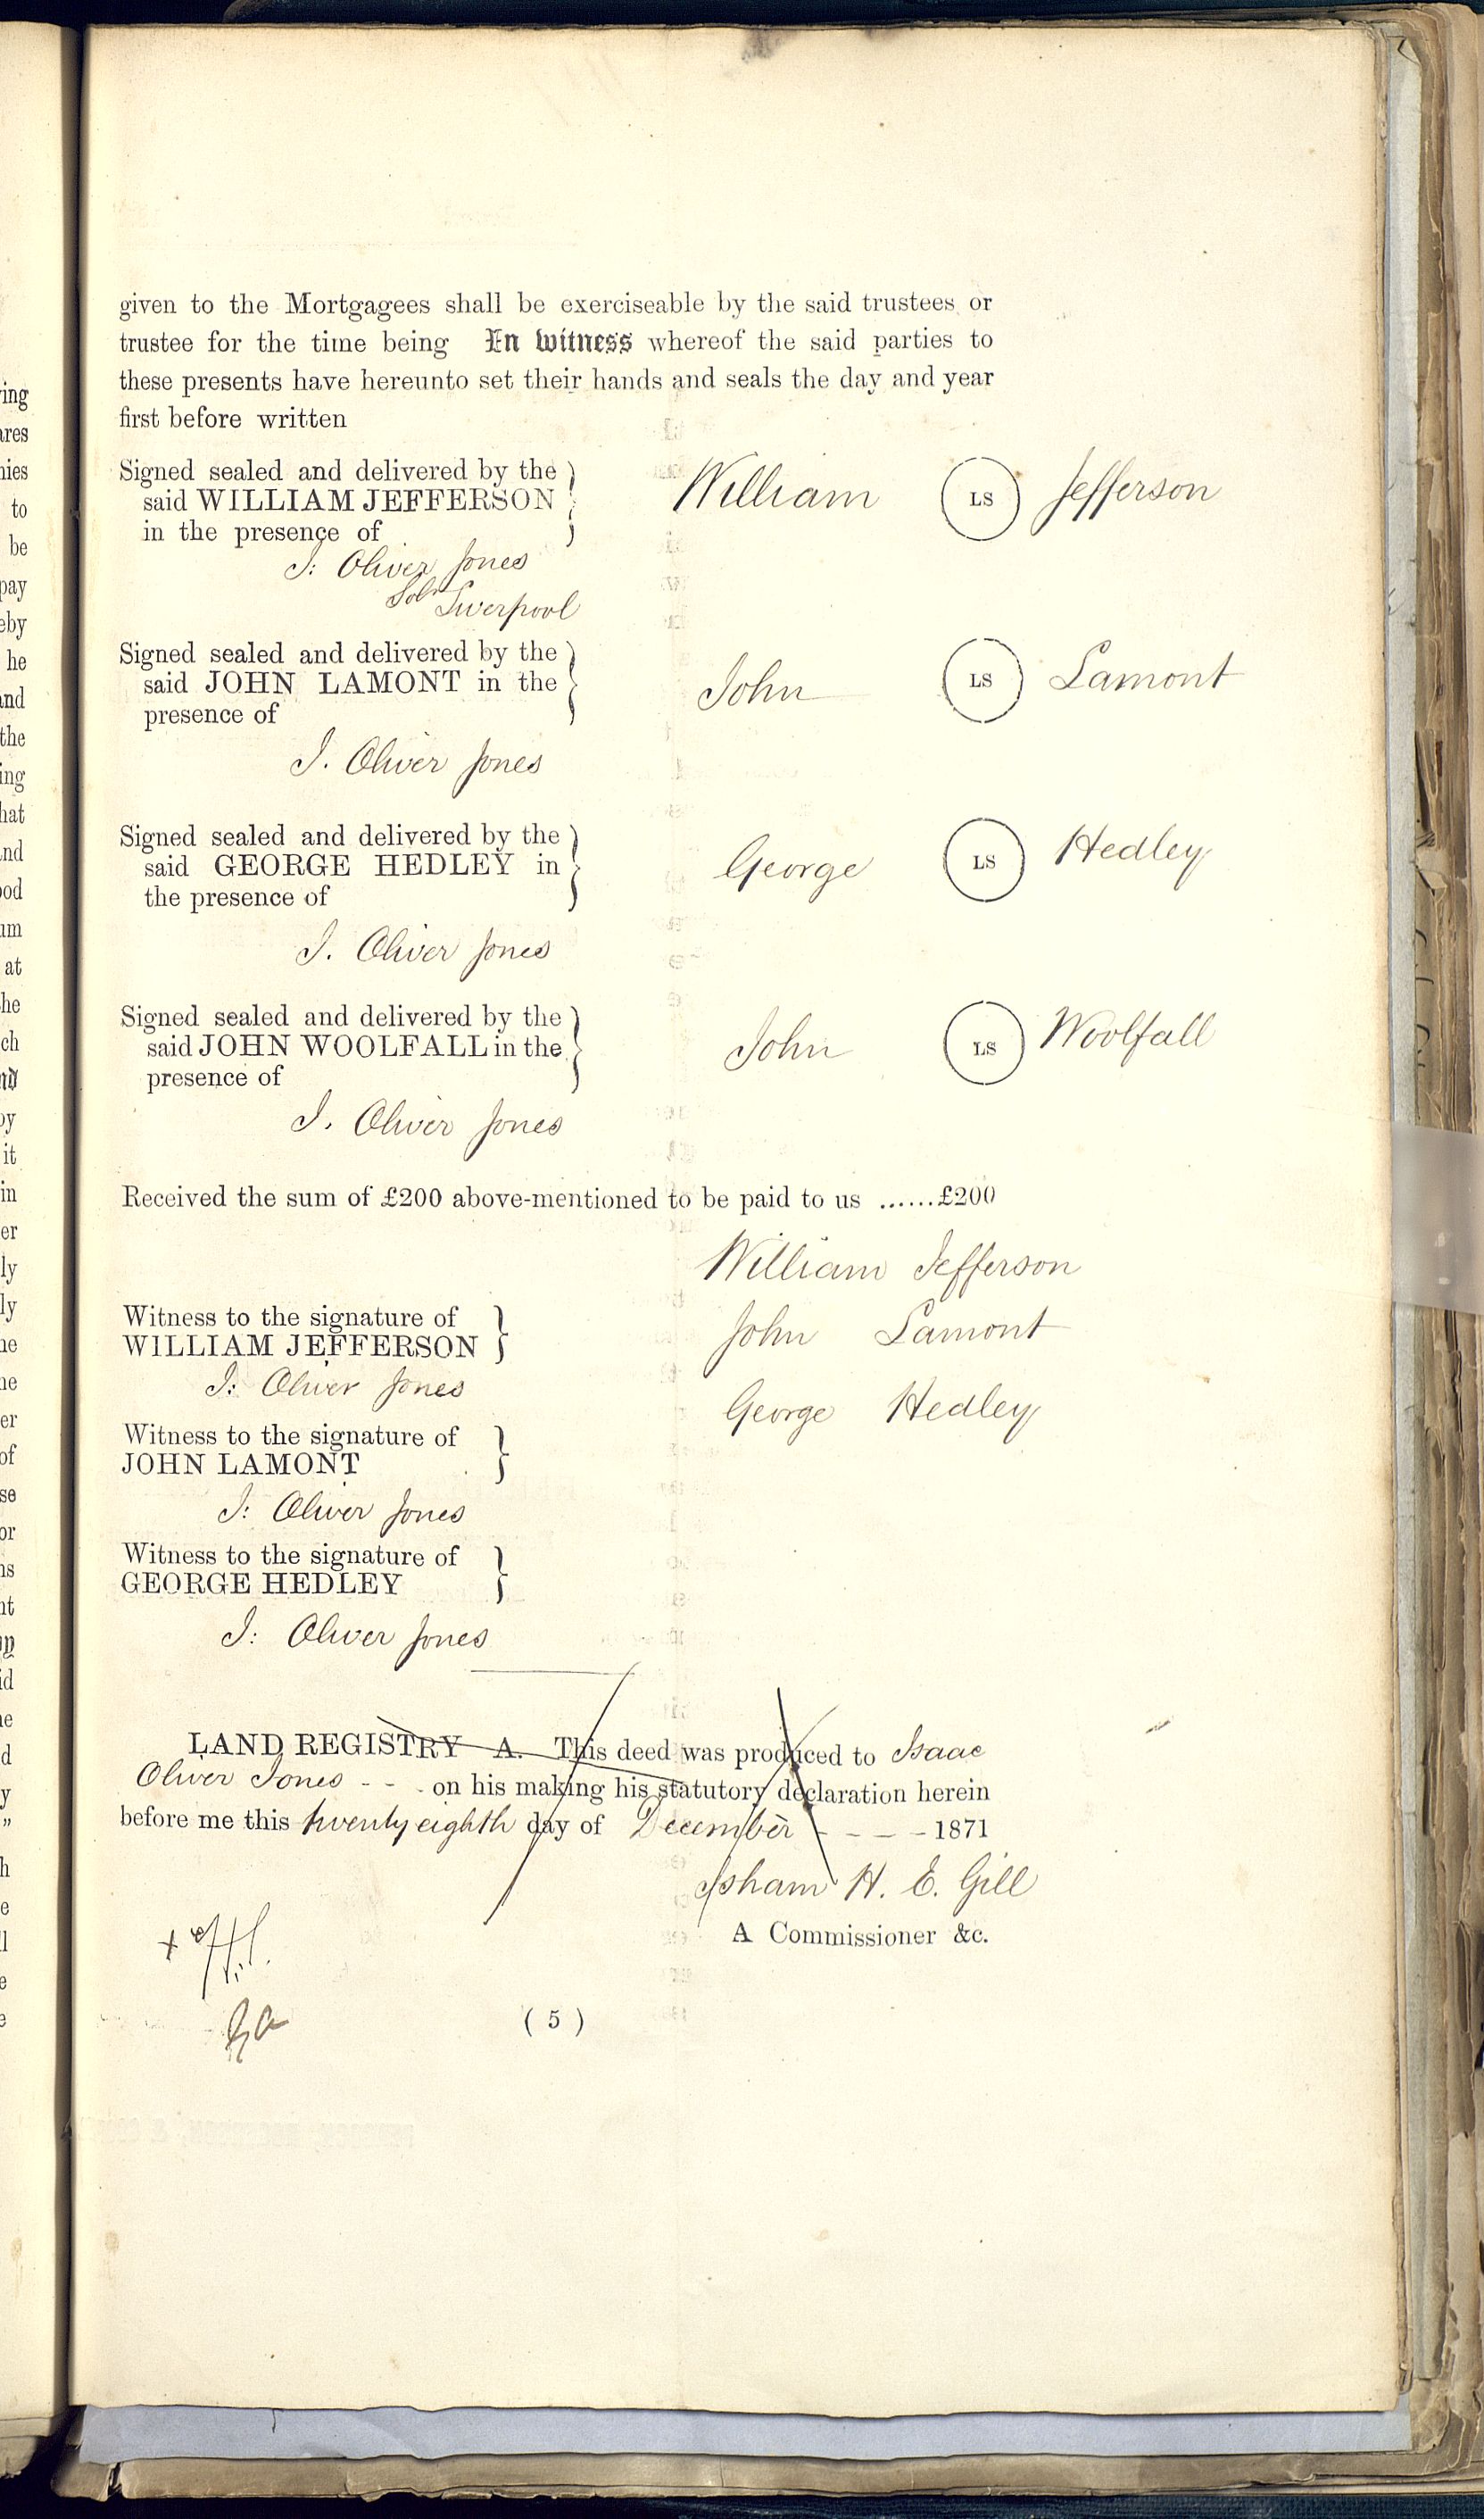 given to the Mortgagees shall be exerciseable by the said trustees or
trustee for the time being In witness whereof the said parties to
these presents have hereunto set their hands and seals the day and year
first before written
Signed sealed and delivered by the
said WILLIAM JEFFERSON
in the presence of
William LS Jefferson
I: Oliver Jones
Solr Liverpool
Signed sealed and delivered by the
said JOHN LAMONT in the
presence of
John LS Lamont
I. Oliver Jones
Signed sealed and delivered by the
said GEORGE HEDLEY in
the presence of
George LS Hedley
I. Oliver Jones
Signed sealed and delivered by the
said JOHN WOOLFALL in the
presence of
John LS Woolfall
I. Oliver Jones
Received the sum of £200 above-mentioned to be paid to us ......£200
William Jefferson
John Lamont
George Hedley
Witness to the signature of
WILLIAM JEFFERSON
I: Oliver Jones
Witness to the signature of
JOHN LAMONT
I: Oliver Jones
Witness to the signature of
GEORGE HEDLEY
I: Oliver Jones
LAND REGISTRY A. This deed was produced to Isaac
Oliver Jones - - - on his making his statutory declaration herein
before me this twenty eighth day of December - - - - 1871
Isham H. E. Gill
A Commissioner &c.
( 5 )